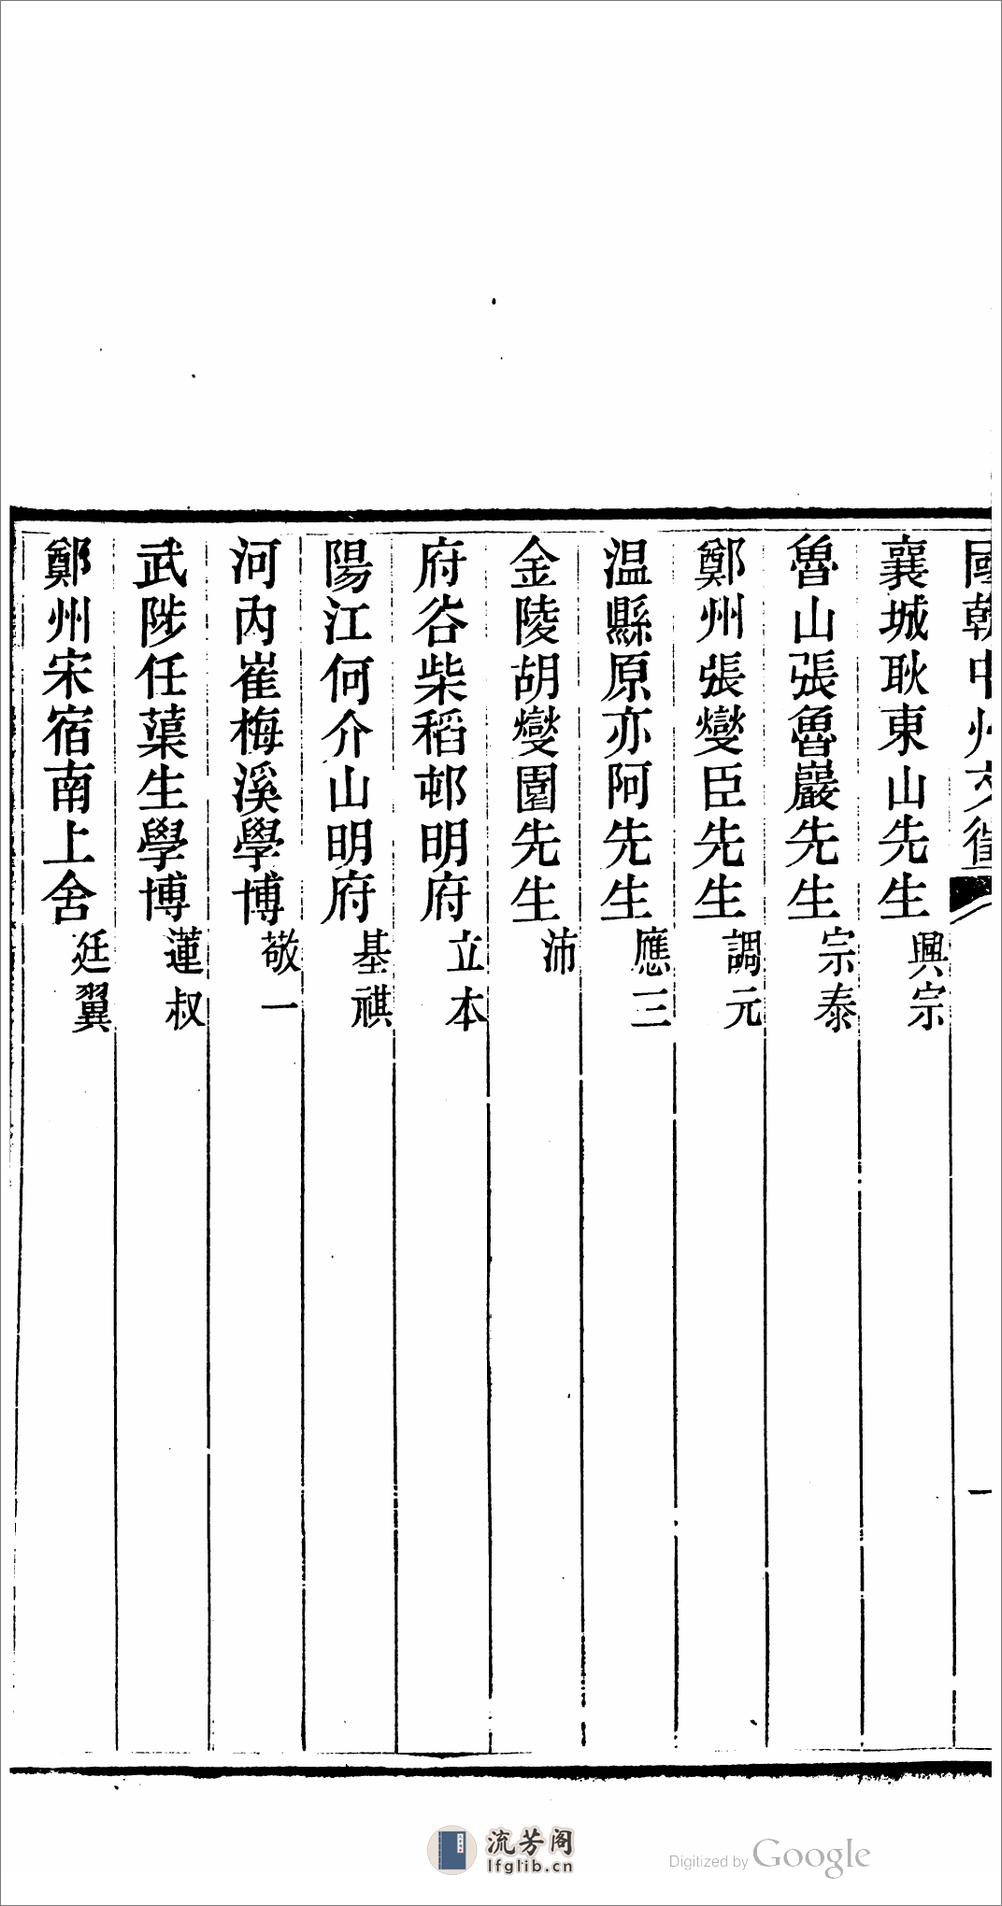 國朝中州文徵
一
襄城耿東山先生興宗
魯山張魯巖先生宗泰
鄭州張燮臣先生調元
温縣原亦阿先生應三
金陵胡燮園先生沛
府谷柴稻邨明府立本
陽江何介山明府基祺
河內崔梅溪學博敬一
武陟任蕖生學博蓮叔
鄭州宋宿南上舍廷翼
流芳阁
lfglib.cn
Digitized by Google